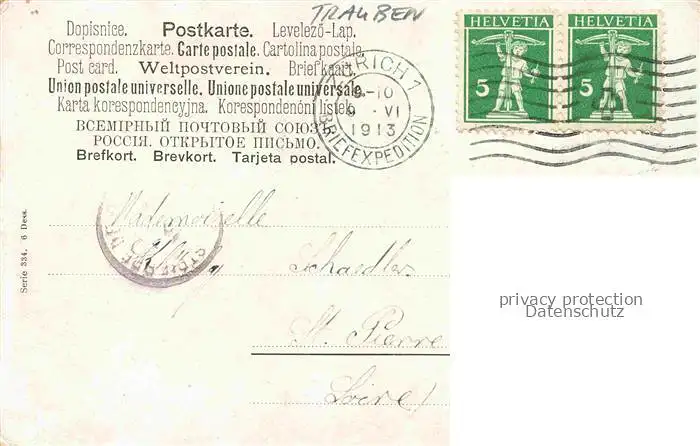 TRAUBEN
Dopisnice. Postkarte. Levelező-Lap.
Correspondenzkarte. Carte postale. Cartolina postale.
Post card. Weltpostverein. Briefkaart.
Union postale universelle. Unione postale universale.
Karta korespondencyjna. Korespondenční lístek.
ВСЕМІРНЫЙ ПОЧТОВЫЙ СОЮЗЪ
РОССІЯ. ОТКРЫТОЕ ПИСЬМО.
Brefkort. Brevkort. Tarjeta postal.
ZÜRICH 1
VI
1913
BRIEFEXPEDITION
HELVETIA HELVETIA
5 5
Serie 334. 6 Dess.
Mademoiselle
Schaedler
St. Pierre
Loire
privacy protection
Datenschutz